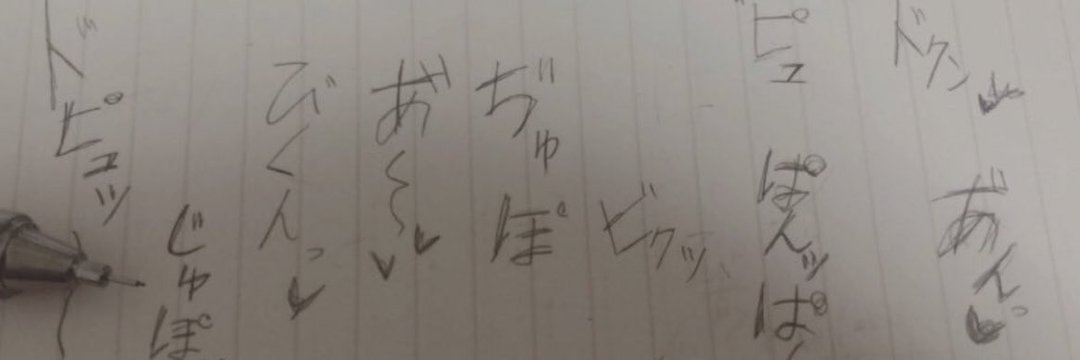 ドクン♥
あ゙ん♥
ピュ
ぱんッぱ
ビクッ
ぢゅぽ
あ゙~~♥♥
びくんっ♥
じゅぽ
ドピュッ